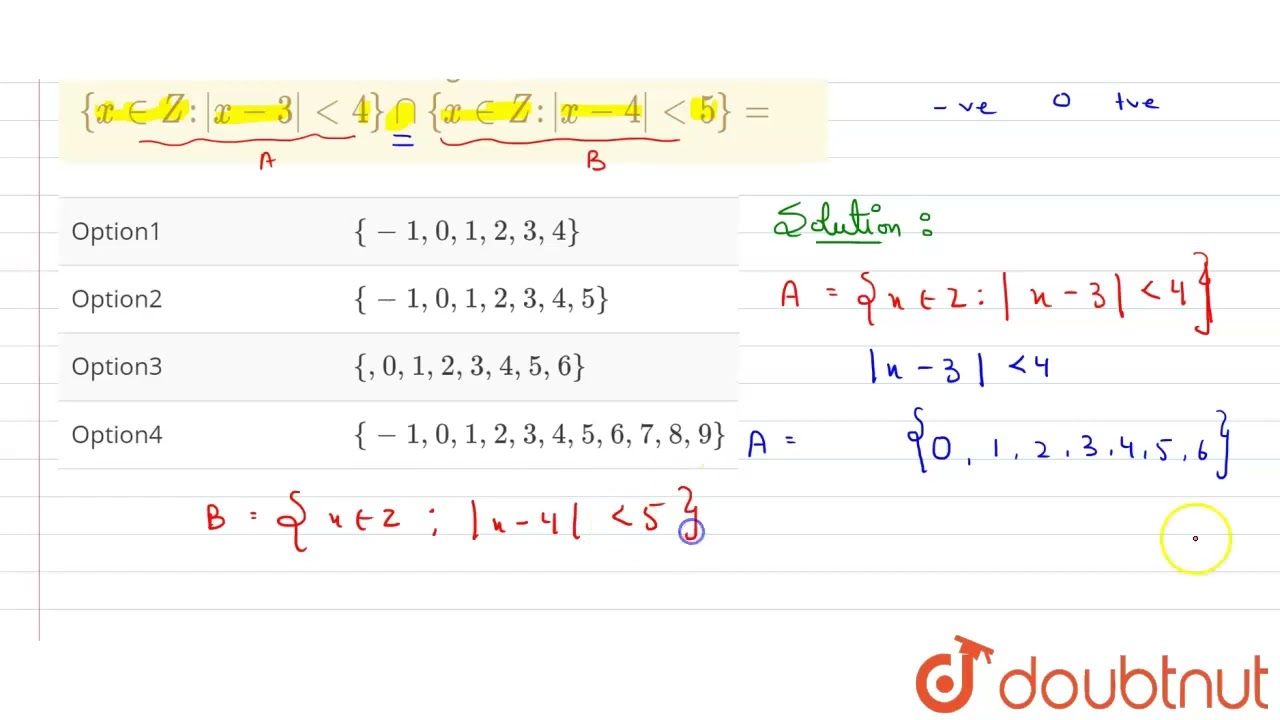 {x ∈ Z: |x − 3| < 4} ∩ {x ∈ Z: |x − 4| < 5} =
A
=
B
-ve 0 +ve
Option1 { − 1, 0, 1, 2, 3, 4}
Option2 { − 1, 0, 1, 2, 3, 4, 5}
Option3 {, 0, 1, 2, 3, 4, 5, 6}
Option4 { − 1, 0, 1, 2, 3, 4, 5, 6, 7, 8, 9}
Solution :
A = {x ∈ Z : |x - 3| < 4}
|x - 3| < 4
A = {0, 1, 2, 3, 4, 5, 6}
B = {x ∈ Z ; |x - 4| < 5}
doubtnut